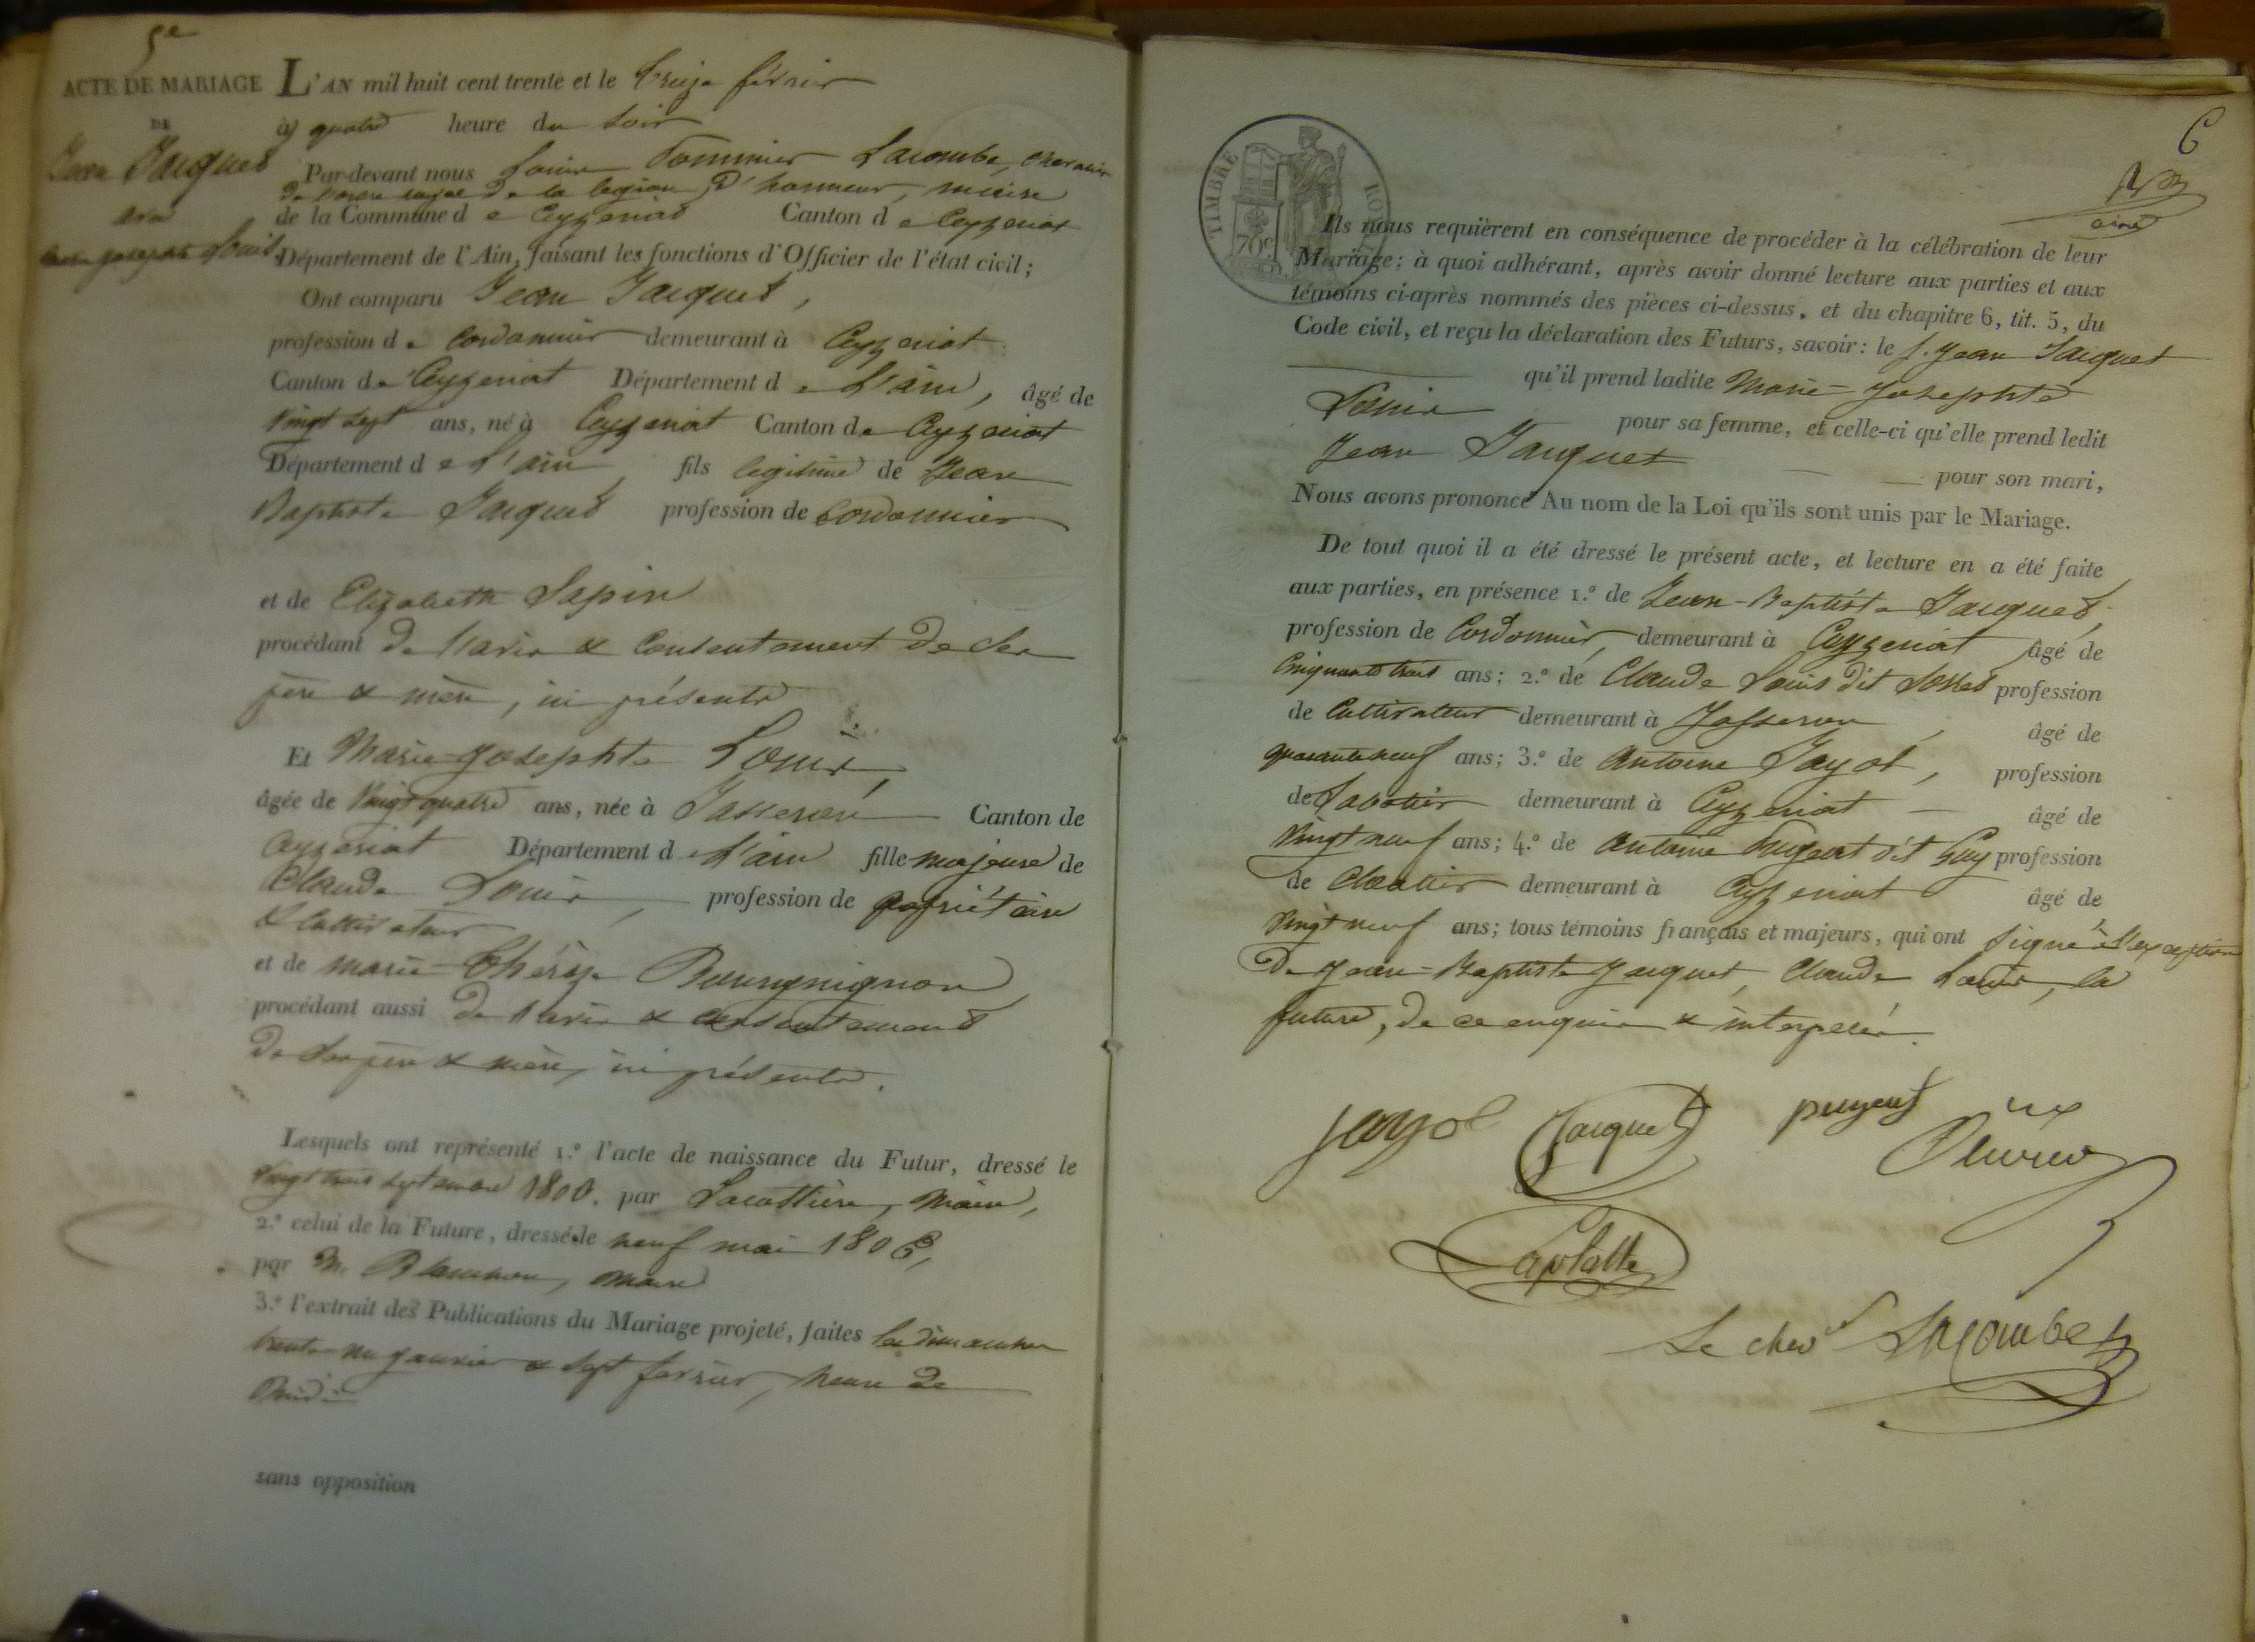 5e
ACTE DE MARIAGE L'AN mil huit cent trente et le treize février
DE
Jean Jacquet
à quatre heure du soir
Par-devant nous Louis Lacombe, chevalier
de l'ordre royal de la légion d'honneur, maire
de la Commune de Ceyzeriat Canton de Ceyzeriat
Département de l'Ain, faisant les fonctions d'Officier de l'état civil;
Ont comparu Jean Jacquet,
profession de Cordonnier demeurant à Ceyzeriat
Canton de Ceyzeriat Département de L'ain, âgé de
vingt sept ans, né à Ceyzeriat Canton de Ceyzeriat
Département de L'ain fils legitime de Jean
Baptiste Jacquet profession de Cordonnier
et de Elizabeth Sapin
procédant de l'avis & consentement de ses
père & mère, ici présents
Et Marie-Josephte Louis,
âgée de vingt quatre ans, née à Jasseron Canton de
Ceyzeriat Département de L'ain fille majeure de
Claude Louis, profession de propriétaire
& cultivateur
et de marie-Thérèze Bourguignon
procédant aussi de l'avis & consentement
de ses père & mère, ici présents.
Lesquels ont représenté 1.º l'acte de naissance du Futur, dressé le
vingt trois septembre 180 . par Maire,
2.º celui de la Future, dressé le neuf mai 1806,
par M. maire
3.º l'extrait des Publications du Mariage projeté, faites les dimanches
trente-un janvier & sept février, heure de
midi
sans opposition
6
TIMBRE ROYAL
70 c.
Ils nous requièrent en conséquence de procéder à la célébration de leur
Mariage: à quoi adhérant, après avoir donné lecture aux parties et aux
témoins ci-après nommés des pièces ci-dessus, et du chapitre 6, tit. 5, du
Code civil, et reçu la déclaration des Futurs, savoir: le s. Jean Jacquet
qu'il prend ladite Marie-Josephte
Louis pour sa femme, et celle-ci qu'elle prend ledit
Jean Jacquet pour son mari,
Nous avons prononcé Au nom de la Loi qu'ils sont unis par le Mariage.
De tout quoi il a été dressé le présent acte, et lecture en a été faite
aux parties, en présence 1.º de Jean-Baptiste Jacquet,
profession de Cordonnier, demeurant à Ceyzeriat âgé de
cinquante trois ans; 2.º de Claude Louis dit profession
de Cultivateur demeurant à Jasseron, âgé de
quarante neuf ans; 3.º de Antoine Jayol, profession
de Sabotier demeurant à Ceyzeriat âgé de
vingt neuf ans; 4.º de Antoine dit Guy profession
de demeurant à Ceyzeriat âgé de
vingt neuf ans; tous témoins français et majeurs, qui ont signé à l'exception
de Jean-Baptiste Jacquet, Claude Louis, la
future, de ce enquis & interpellés.
jayol Jacquet
Le chev. Lacombe